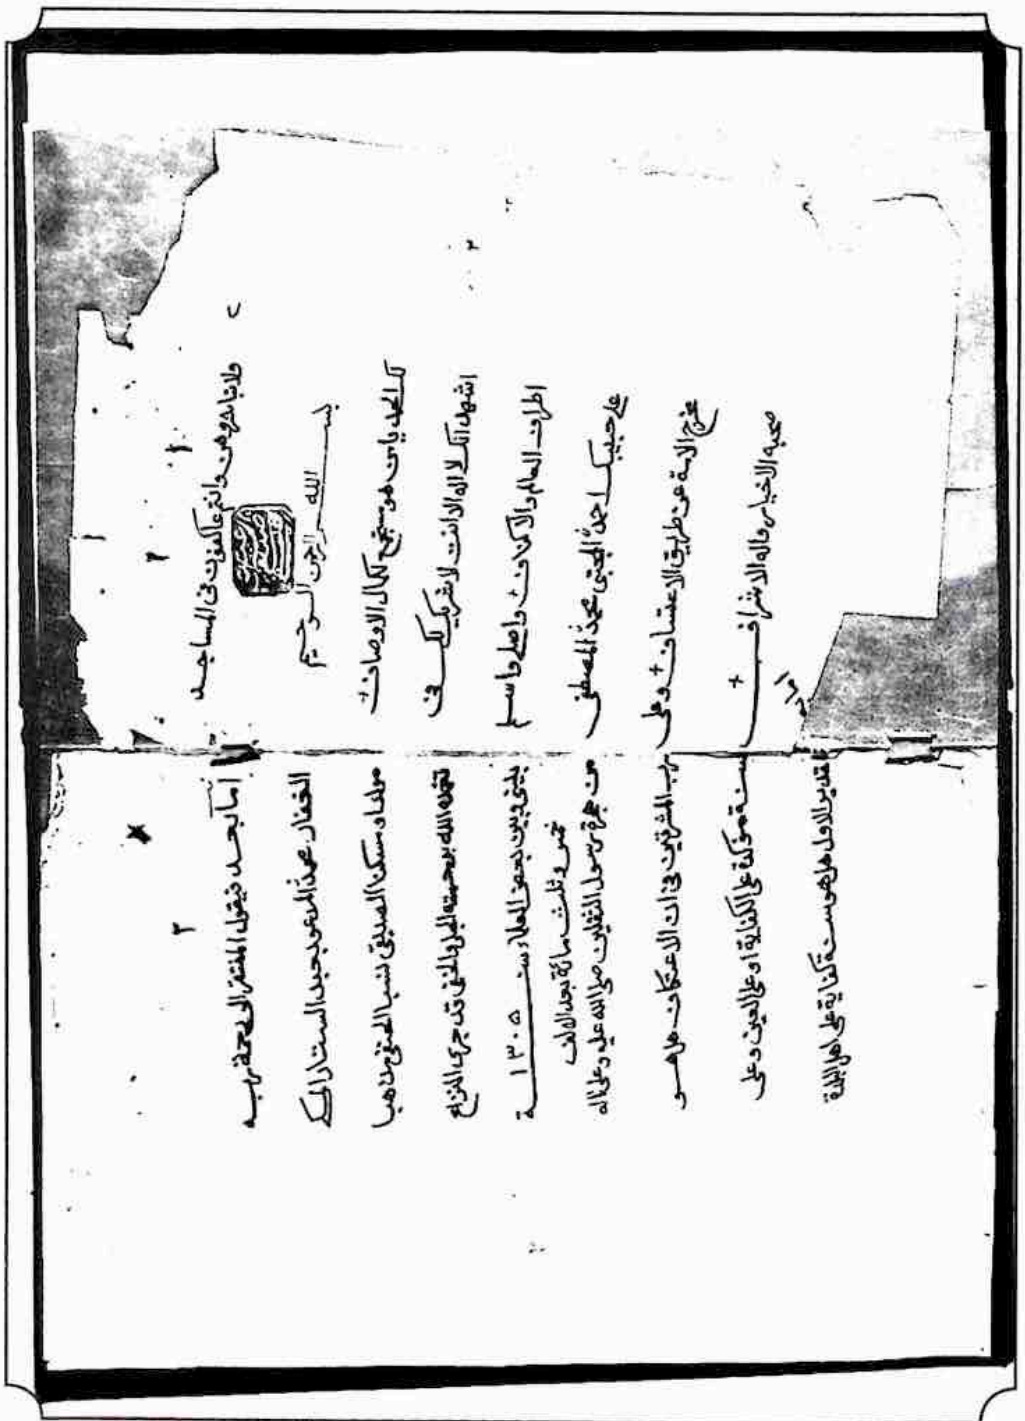 ولا تباشروهن وانتم عاكفون في المساجد
بسم الله الرحمن الرحيم
لك الحمد يا من هو مستجمع لكمال الاوصاف
اشهد انك لا اله الا انت لا شريك لك في
اطراف العالم والاكناف + واصلي واسلم
على حبيبك احمد المجتبى محمد المصطفى
مخرج الامة عن طريق الاعتساف + وعلى
صحبه الاخيار واله الاشراف +
اما بعد فيقول المفتقر الى رحمة ربه
الغفار محمد المدعو بعبد الستار المكي
مولدا ومسكنا الصديقي نسبا الحنفي مذهبا
تغمده الله برحمته الجلي والخفي قد جرى النزاع
بيني وبين بعض العلماء سنة ١٣٠٥
خمس وثلث مائة بعد الالف
من هجرة رسول الثقلين صلى الله عليه وعلى اله
رب المشرقين في ان الاعتكاف هل هو
سنة مؤكدة على الكفاية او على العين وعلى
التقدير الاول هل هو سنة كفاية على اهل البلدة